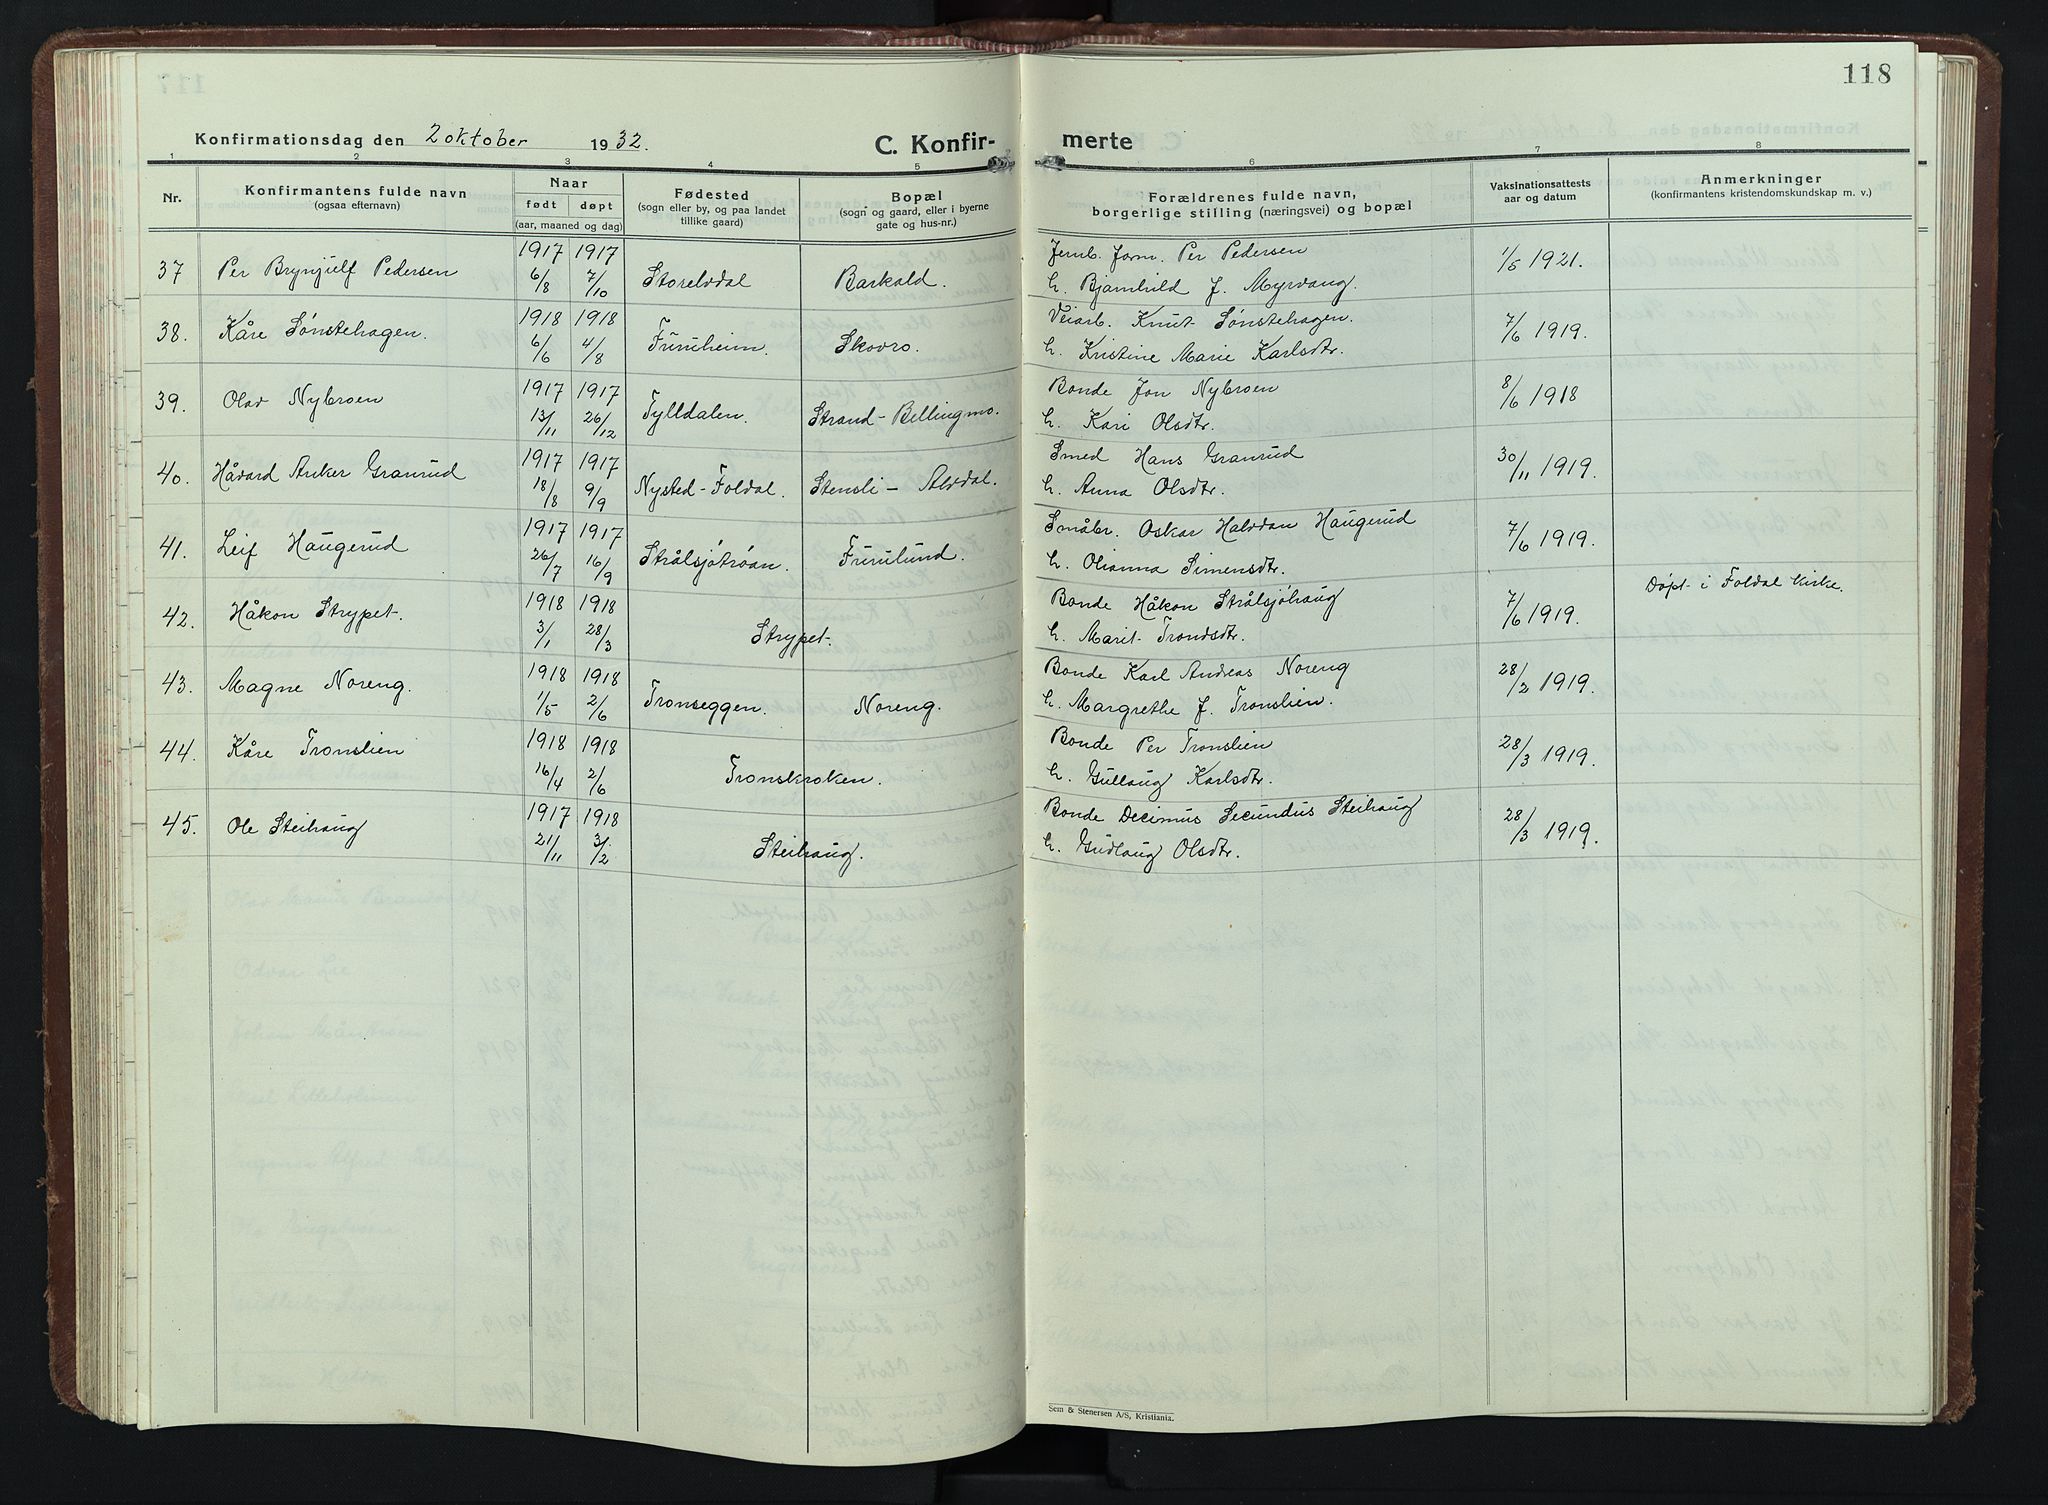 118
Konfirmationsdag den 2 oktober 1932. C. Konfir- merte
1 2 3 4 5 6 7 8
Nr. Konfirmantens fulde navn (ogsaa efternavn) Naar født døpt (aar, maaned og dag) Fødested (sogn eller by, og paa landet tillike gaard) Bopæl (sogn og gaard, eller i byerne gate og hus-nr.) Forældrenes fulde navn, borgerlige stilling (næringsvei) og bopæl Vaksinationsattests aar og datum Anmerkninger (konfirmantens kristendomskundskap m. v.)
1917 1917 Jernb. form. Per Pedersen
37 Per Brynjulf Pedersen 6/8 7/10 Storelvdal Barkald. h. Bjarnhild J. Myrvang. 1/5 1921.
1918 1918 Veiarb. Knut Sønstehagen.
38. Kåre Sønstehagen. 6/6 4/8 Furuheim. Skovro. h. Kristine Marie Karlsdtr. 7/6 1919.
1917 1917 Bonde Jon Nybroen
39. Olav Nybroen 13/11 26/12 Tylldalen. Strand - Bellingmo. h. Kari Olsdtr. 8/6 1918
1917 1917 Smed Hans Granrud
40. Håvard Anker Granrud 18/8 9/9 Nysted - Foldal. Stensli - Alvdal. h. Anna Olsdtr. 30/11 1919.
1917 1917 Småbr. Oskar Halvdan Haugerud
41. Leif Haugerud 26/7 16/9 Strålsjøtrøan. Furulund. h. Olianna Simensdtr. 7/6 1919.
1918 1918 Bonde Håkon Strålsjøhaug
42. Håkon Strypet. 3/1 28/3 Strypet. h. Marit Trondsdtr. 7/6 1919. Døpt i Foldal Kirke.
1918 1918 Bonde Karl Andreas Noreng
43. Magne Noreng. 1/5 2/6 Tronseggen. Noreng. h. Margrethe J. Tronslien. 28/2 1919.
1918 1918 Bonde Per Tronslien
44. Kåre Tronslien 16/4 2/6 Tronskroken. h. Gullaug Karlsdtr. 28/3 1919.
1917 1918 Bonde Decimus Secundus Steihaug
45. Ole Steihaug 21/11 3/2 Steihaug. h. Gudlaug Olsdtr. 28/3 1919.
Sem & Stenersen A/S, Kristiania.